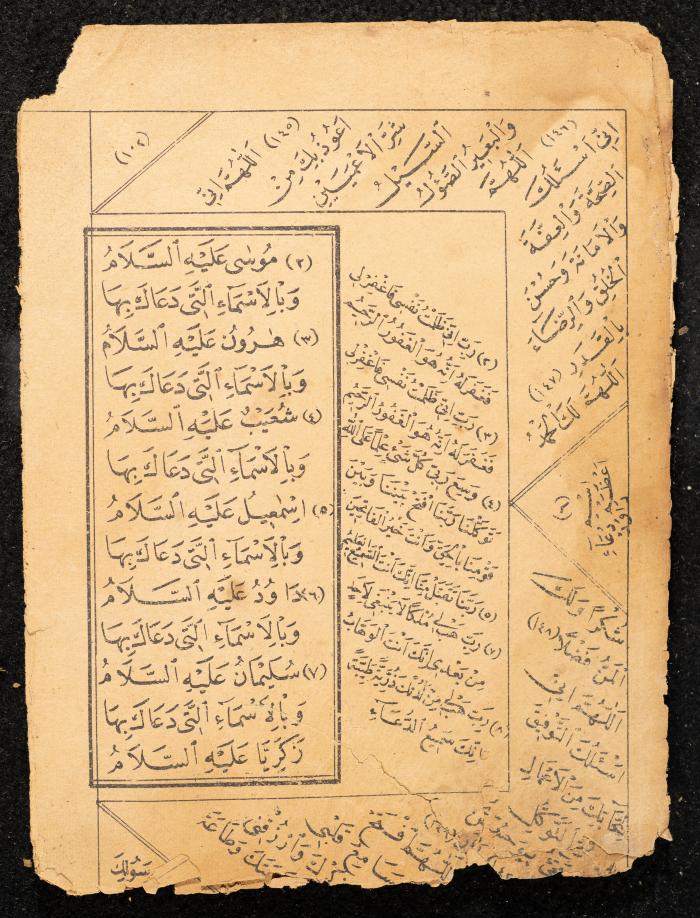 (١٠٤)
(١٤٥) اَللّٰهُمَّ اِنِّى
اَعُوذُ بِكَ مِنْ
شَرِّ الْاَعْمَيَيْنِ
السَّيْلِ
وَالْبَعِيرِ الصَّؤُلِ
(١٤٦) اَللّٰهُمَّ
اِنِّى اَسْئَلُكَ
الصِّحَّةَ وَالْعِفَّةَ
وَالْاَمَانَةَ وَحُسْنَ
الْخُلُقِ وَالرِّضَاءَ
بِالْقَدَرِ (١٤٧)
اَللّٰهُمَّ لَكَ الْحَمْدُ
(٢) مُوسٰى عَلَيْهِ السَّلَامُ
وَبِالْاَسْمَاءِ الَّتِى دَعَاكَ بِهَا
(٣) هٰرُونُ عَلَيْهِ السَّلَامُ
وَبِالْاَسْمَاءِ الَّتِى دَعَاكَ بِهَا
(٤) شُعَيْبٌ عَلَيْهِ السَّلَامُ
وَبِالْاَسْمَاءِ الَّتِى دَعَاكَ بِهَا
(٥) اِسْمٰعِيلُ عَلَيْهِ السَّلَامُ
وَبِالْاَسْمَاءِ الَّتِى دَعَاكَ بِهَا
(٦) دَاوُدُ عَلَيْهِ السَّلَامُ
وَبِالْاَسْمَاءِ الَّتِى دَعَاكَ بِهَا
(٧) سُلَيْمَانُ عَلَيْهِ السَّلَامُ
وَبِالْاَسْمَاءِ الَّتِى دَعَاكَ بِهَا
زَكَرِيَّا عَلَيْهِ السَّلَامُ
(٢) رَبِّ اِنِّى ظَلَمْتُ نَفْسِى فَاغْفِرْلِى
فَغَفَرَ لَهُ اِنَّهُ هُوَ الْغَفُورُ الرَّحِيمُ
(٣) رَبِّ اِنِّى ظَلَمْتُ نَفْسِى فَاغْفِرْلِى
فَغَفَرَ لَهُ اِنَّهُ هُوَ الْغَفُورُ الرَّحِيمُ
(٤) وَسِعَ رَبِّى كُلَّ شَىْءٍ عِلْمًا عَلَى اللّٰهِ
تَوَكَّلْنَا رَبَّنَا افْتَحْ بَيْنَنَا وَبَيْنَ
قَوْمِنَا بِالْحَقِّ وَاَنْتَ خَيْرُ الْفَاتِحِينَ
(٥) رَبَّنَا تَقَبَّلْ مِنَّا اِنَّكَ اَنْتَ السَّمِيعُ الْعَلِيمُ
(٧) رَبِّ هَبْ لِى مُلْكًا لَا يَنْبَغِى لِاَحَدٍ
مِنْ بَعْدِى اِنَّكَ اَنْتَ الْوَهَّابُ
(٨) رَبِّ هَبْ لِى مِنْ لَدُنْكَ ذُرِّيَّةً طَيِّبَةً
اِنَّكَ سَمِيعُ الدُّعَاءِ
اِسْم
اَعْظَم
دُعَاءِ
شُكْرًا وَلَكَ
الْمَنُّ فَضْلًا (١٤٨)
اَللّٰهُمَّ اِنِّى
اَسْئَلُكَ التَّوْفِيقَ
مِنَ الْاَعْمَالِ
التَّوَكُّلِ
اَللّٰهُمَّ افْتَحْ
مَسَامِعَ قَلْبِى
وَارْزُقْنِى
وَطَاعَةَ
رَسُولِكَ